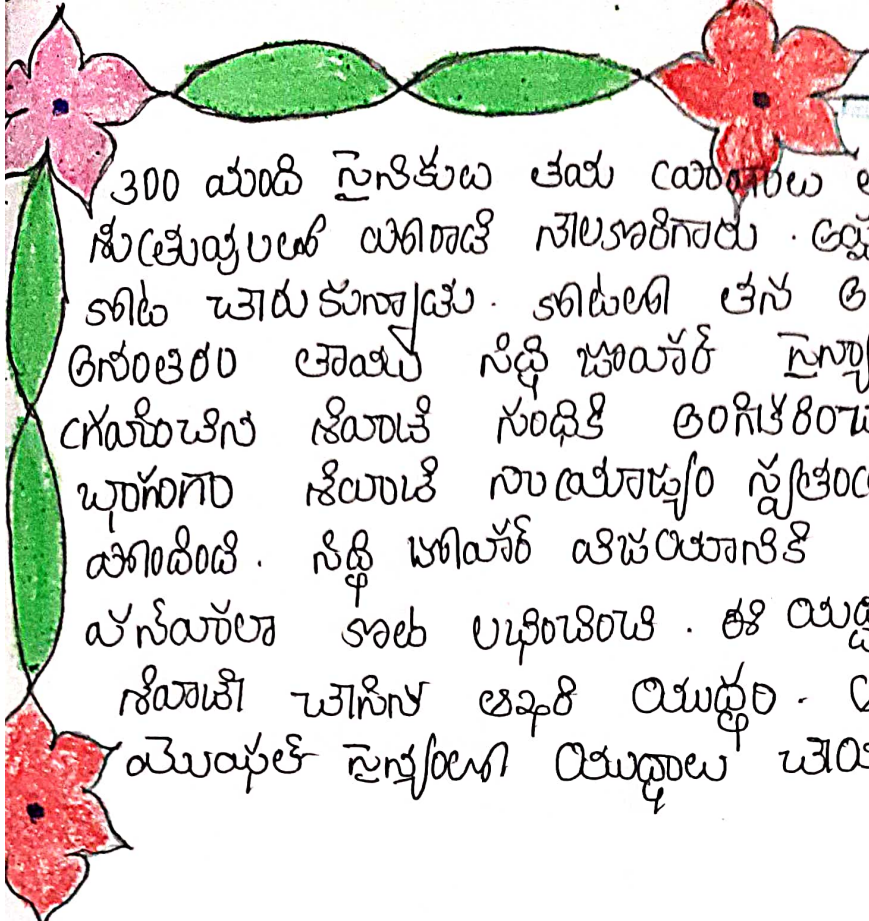 300 మంది సైనికులు తమ ప్రాణాలు
శత్రువులతో పోరాడి నేలకొరిగారు. అప్ప
కోట చేరుకున్నాడు. కోటలో తన
అనంతరం తాము సిద్ధి జోహార్ సైన్యా
గ్రహించిన శివాజి సంధికి అంగీకరించ
భాగంగా శివాజి సామ్రాజ్యం స్వతంత్
పొందింది. సిద్ధి జోహార్ విజయానికి
పన్హాలా కోట లభించింది. ఈ యుద్ధ
శివాజీ చేసిన ఆఖరి యుద్ధం.
మొఘల్ సైన్యంలో యుద్ధాలు చేయ